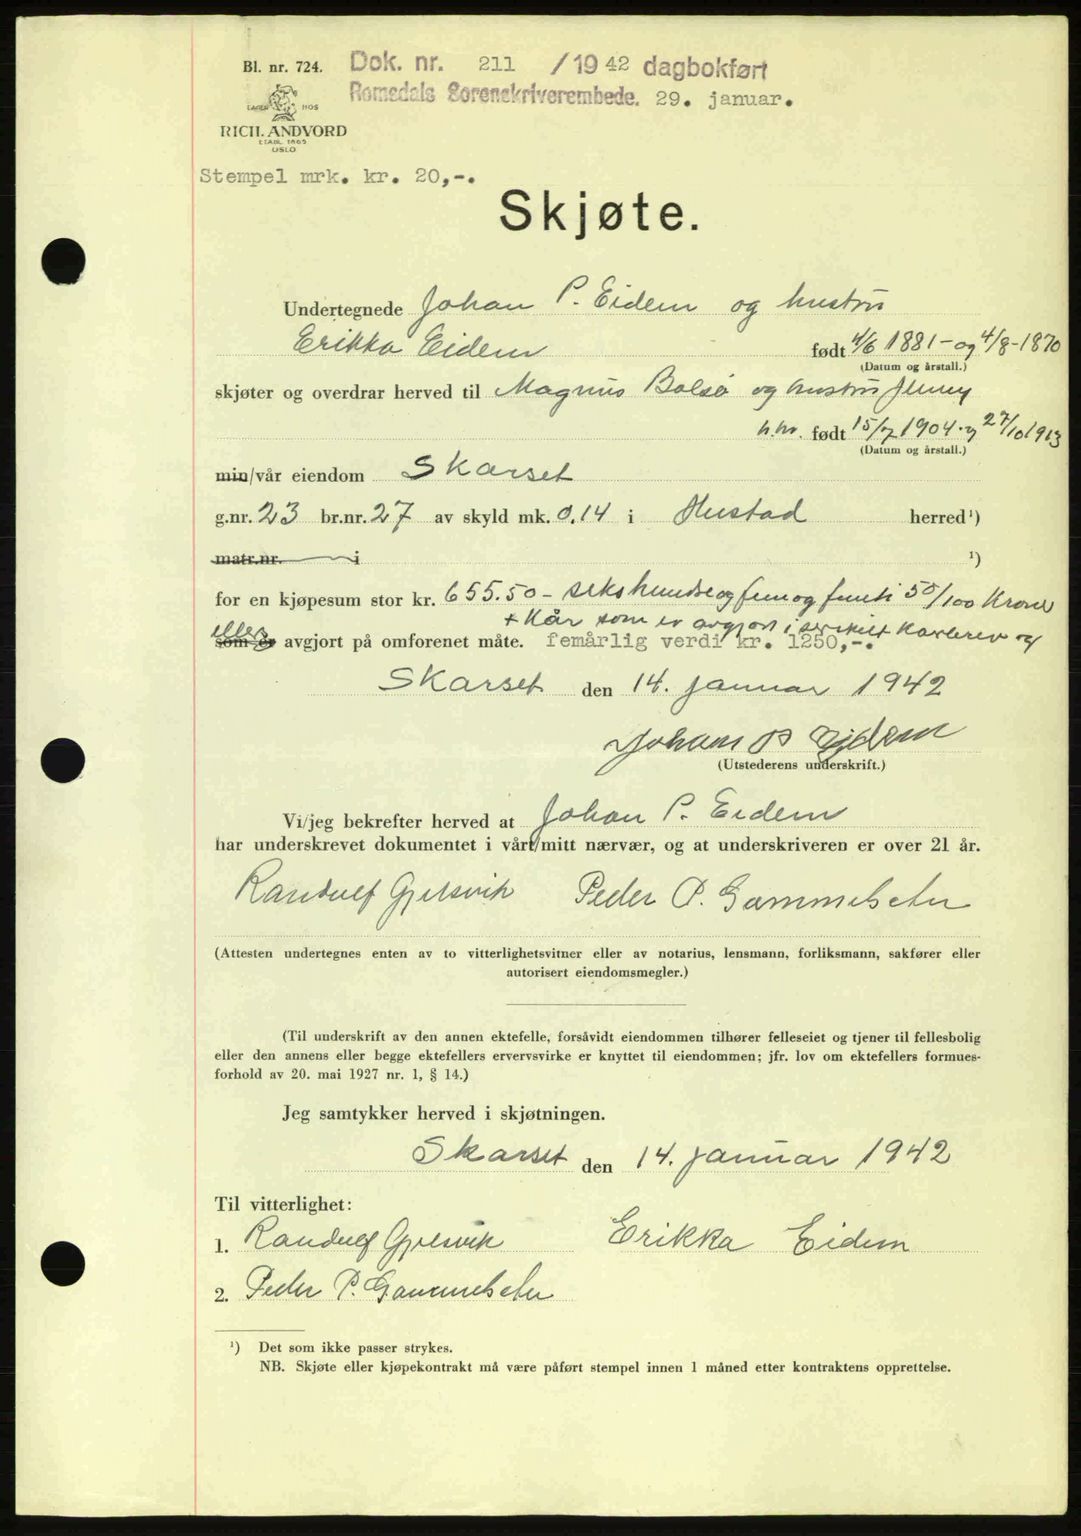 Bl. nr. 724.
Dok. nr. 211 /1942 dagbokført
Romsdals Sorenskriverembede. 29. januar.
LAGER HOS
RICH. ANDVORD
ETABL. 1865
OSLO
Stempel mrk. kr. 20,-.
Skjøte.
Undertegnede Johan P. Eidem og hustru
Erikka Eidem født 4/6 1881 - og 4/8 - 1870
(Datum og årstall.)
skjøter og overdrar herved til Magnus Bolsø og hustru Jenny
h.hv. født 15/7 1904 · og 27/10 1913
(Datum og årstall.)
min/vår eiendom Skarset
g.nr. 23 br.nr. 27 av skyld mk. 0,14 i Hustad herred¹)
matr.nr. i ¹)
for en kjøpesum stor kr. 655.50 - sekshundreogfemogfemti 50/100 Kroner
+ Kår som er avgjort i særskilt Kårbrev og
eller
som er avgjort på omforenet måte. femårlig verdi kr. 1250,-.
Skarset den 14. januar 1942
Johan P Eidem
(Utstederens underskrift.)
Vi/jeg bekrefter herved at Johan P. Eidem
har underskrevet dokumentet i vårt/mitt nærvær, og at underskriveren er over 21 år.
Randulf Gjelsvik Peder P. Gammelseter
(Attesten undertegnes enten av to vitterlighetsvitner eller av notarius, lensmann, forliksmann, sakfører eller
autorisert eiendomsmegler.)
(Til underskrift av den annen ektefelle, forsåvidt eiendommen tilhører felleseiet og tjener til fellesbolig
eller den annens eller begge ektefellers ervervsvirke er knyttet til eiendommen; jfr. lov om ektefellers formues-
forhold av 20. mai 1927 nr. 1, § 14.)
Jeg samtykker herved i skjøtningen.
Skarset den 14. januar 1942
Til vitterlighet:
1. Randulf Gjelsvik Erikka Eidem
2. Peder P. Gammelseter
¹) Det som ikke passer strykes.
NB. Skjøte eller kjøpekontrakt må være påført stempel innen 1 måned etter kontraktens opprettelse.